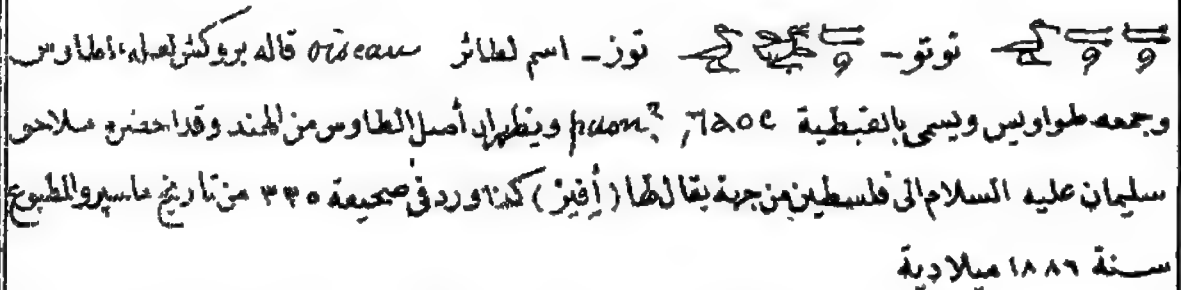 توتو - توز - اسم لطائر oiseau قاله بروكش لعله الطاوس
وجمعه طواويس ويسمى بالقبطية ⲧⲁⲟⲥ paon? ويظهر ان أصل الطاوس من الهند وقد احضره ملاحو
سليمان عليه السلام الى فلسطين من جهة يقال لها (أفيز) كذا ورد في صحيفة ٣٣٥ من تاريخ ماسپرو المطبوع
سنة ١٨٨٦ ميلادية